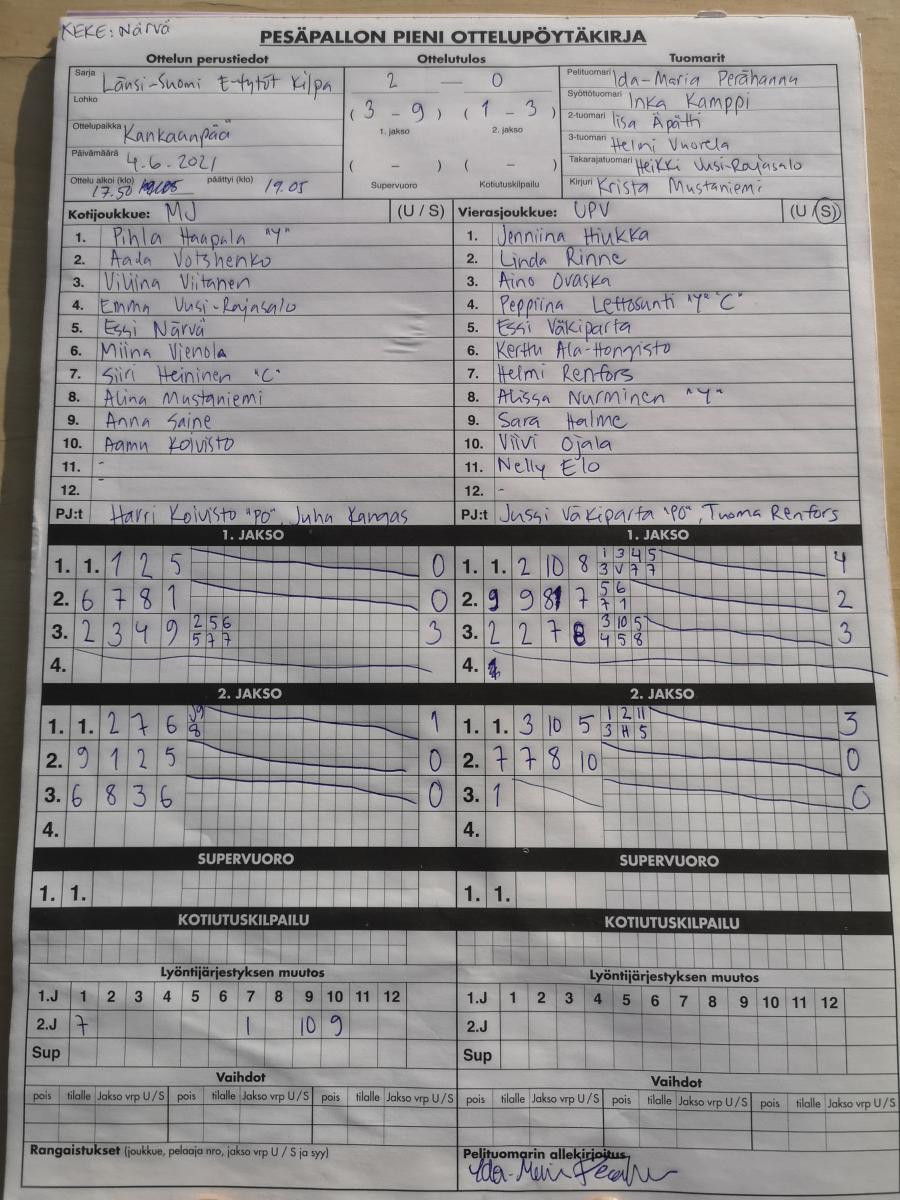 KEKE: Närvä
PESÄPALLON PIENI OTTELUPÖYTÄKIRJA
Ottelun perustiedot Ottelutulos Tuomarit
Sarja Länsi-Suomi E-tytöt Kilpa
Lohko
Ottelupaikka Kankaanpää
Päivämäärä 4.6.2021
Ottelu alkoi (klo) 17.50 päättyi (klo) 19.05
2 — 0
(3 - 9) (1 - 3)
1. jakso 2. jakso
( - ) ( - )
Supervuoro Kotiutuskilpailu
Pelituomari Ida-Maria Perähannu
Syöttötuomari Inka Kamppi
2-tuomari Iisa Äpätti
3-tuomari Helmi Vuorela
Takarajatuomari Heikki Uusi-Rajasalo
Kirjuri Krista Mustaniemi
Kotijoukkue: MJ (U / S)
1. Pihla Haapala "Y"
2. Aada Votshenko
3. Viliina Viitanen
4. Emma Uusi-Rajasalo
5. Essi Närvä
6. Miina Vienola
7. Siiri Heininen "C"
8. Alina Mustaniemi
9. Anna Saine
10. Aamu Koivisto
11. -
12. -
PJ:t Harri Koivisto "PO", Juha Kangas
Vierasjoukkue: UPV (U / S)
1. Jenniina Hiukka
2. Linda Rinne
3. Aino Ovaska
4. Peppiina Lettosunti "Y" "C"
5. Essi Väkiparta
6. Kerttu Ala-Hongisto
7. Helmi Renfors
8. Alissa Nurminen "Y"
9. Sara Halme
10. Viivi Ojala
11. Nelly Elo
12. -
PJ:t Jussi Väkiparta "PO", Tuoma Renfors
1. JAKSO
1. 1. 1 2 5 0
2. 6 7 8 1 0
3. 2 3 4 9 2 5 6 3
5 7 7
4.
1. JAKSO
1. 1. 2 10 8 1 3 4 5 4
3 V 7 7
2. 9 9 8 7 5 6 2
7 1
3. 2 2 7 8 3 10 5 3
4 5 8
4.
2. JAKSO
1. 1. 2 7 6 9 1
8
2. 9 1 2 5 0
3. 6 8 3 6 0
4.
2. JAKSO
1. 1. 3 10 5 1 2 11 3
3 H 5
2. 7 7 8 10 0
3. 1 0
4.
SUPERVUORO
1. 1.
SUPERVUORO
1. 1.
KOTIUTUSKILPAILU
KOTIUTUSKILPAILU
Lyöntijärjestyksen muutos
1.J 1 2 3 4 5 6 7 8 9 10 11 12
2.J 7 1 10 9
Sup
Lyöntijärjestyksen muutos
1.J 1 2 3 4 5 6 7 8 9 10 11 12
2.J
Sup
Vaihdot
pois tilalle Jakso vrp U / S pois tilalle Jakso vrp U / S pois tilalle Jakso vrp U / S
Vaihdot
pois tilalle Jakso vrp U / S pois tilalle Jakso vrp U / S pois tilalle Jakso vrp U / S
Rangaistukset (joukkue, pelaaja nro, jakso vrp U / S ja syy)
Pelituomarin allekirjoitus